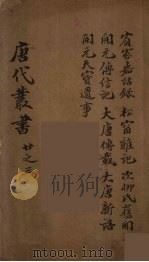 賓客嘉話錄 松窗雜記 次柳氏舊聞
開元傳信記 大唐傳載 大唐新語
開元天寶遺事
唐代叢書 廿之
研狗
mtoou.info mtoou.info